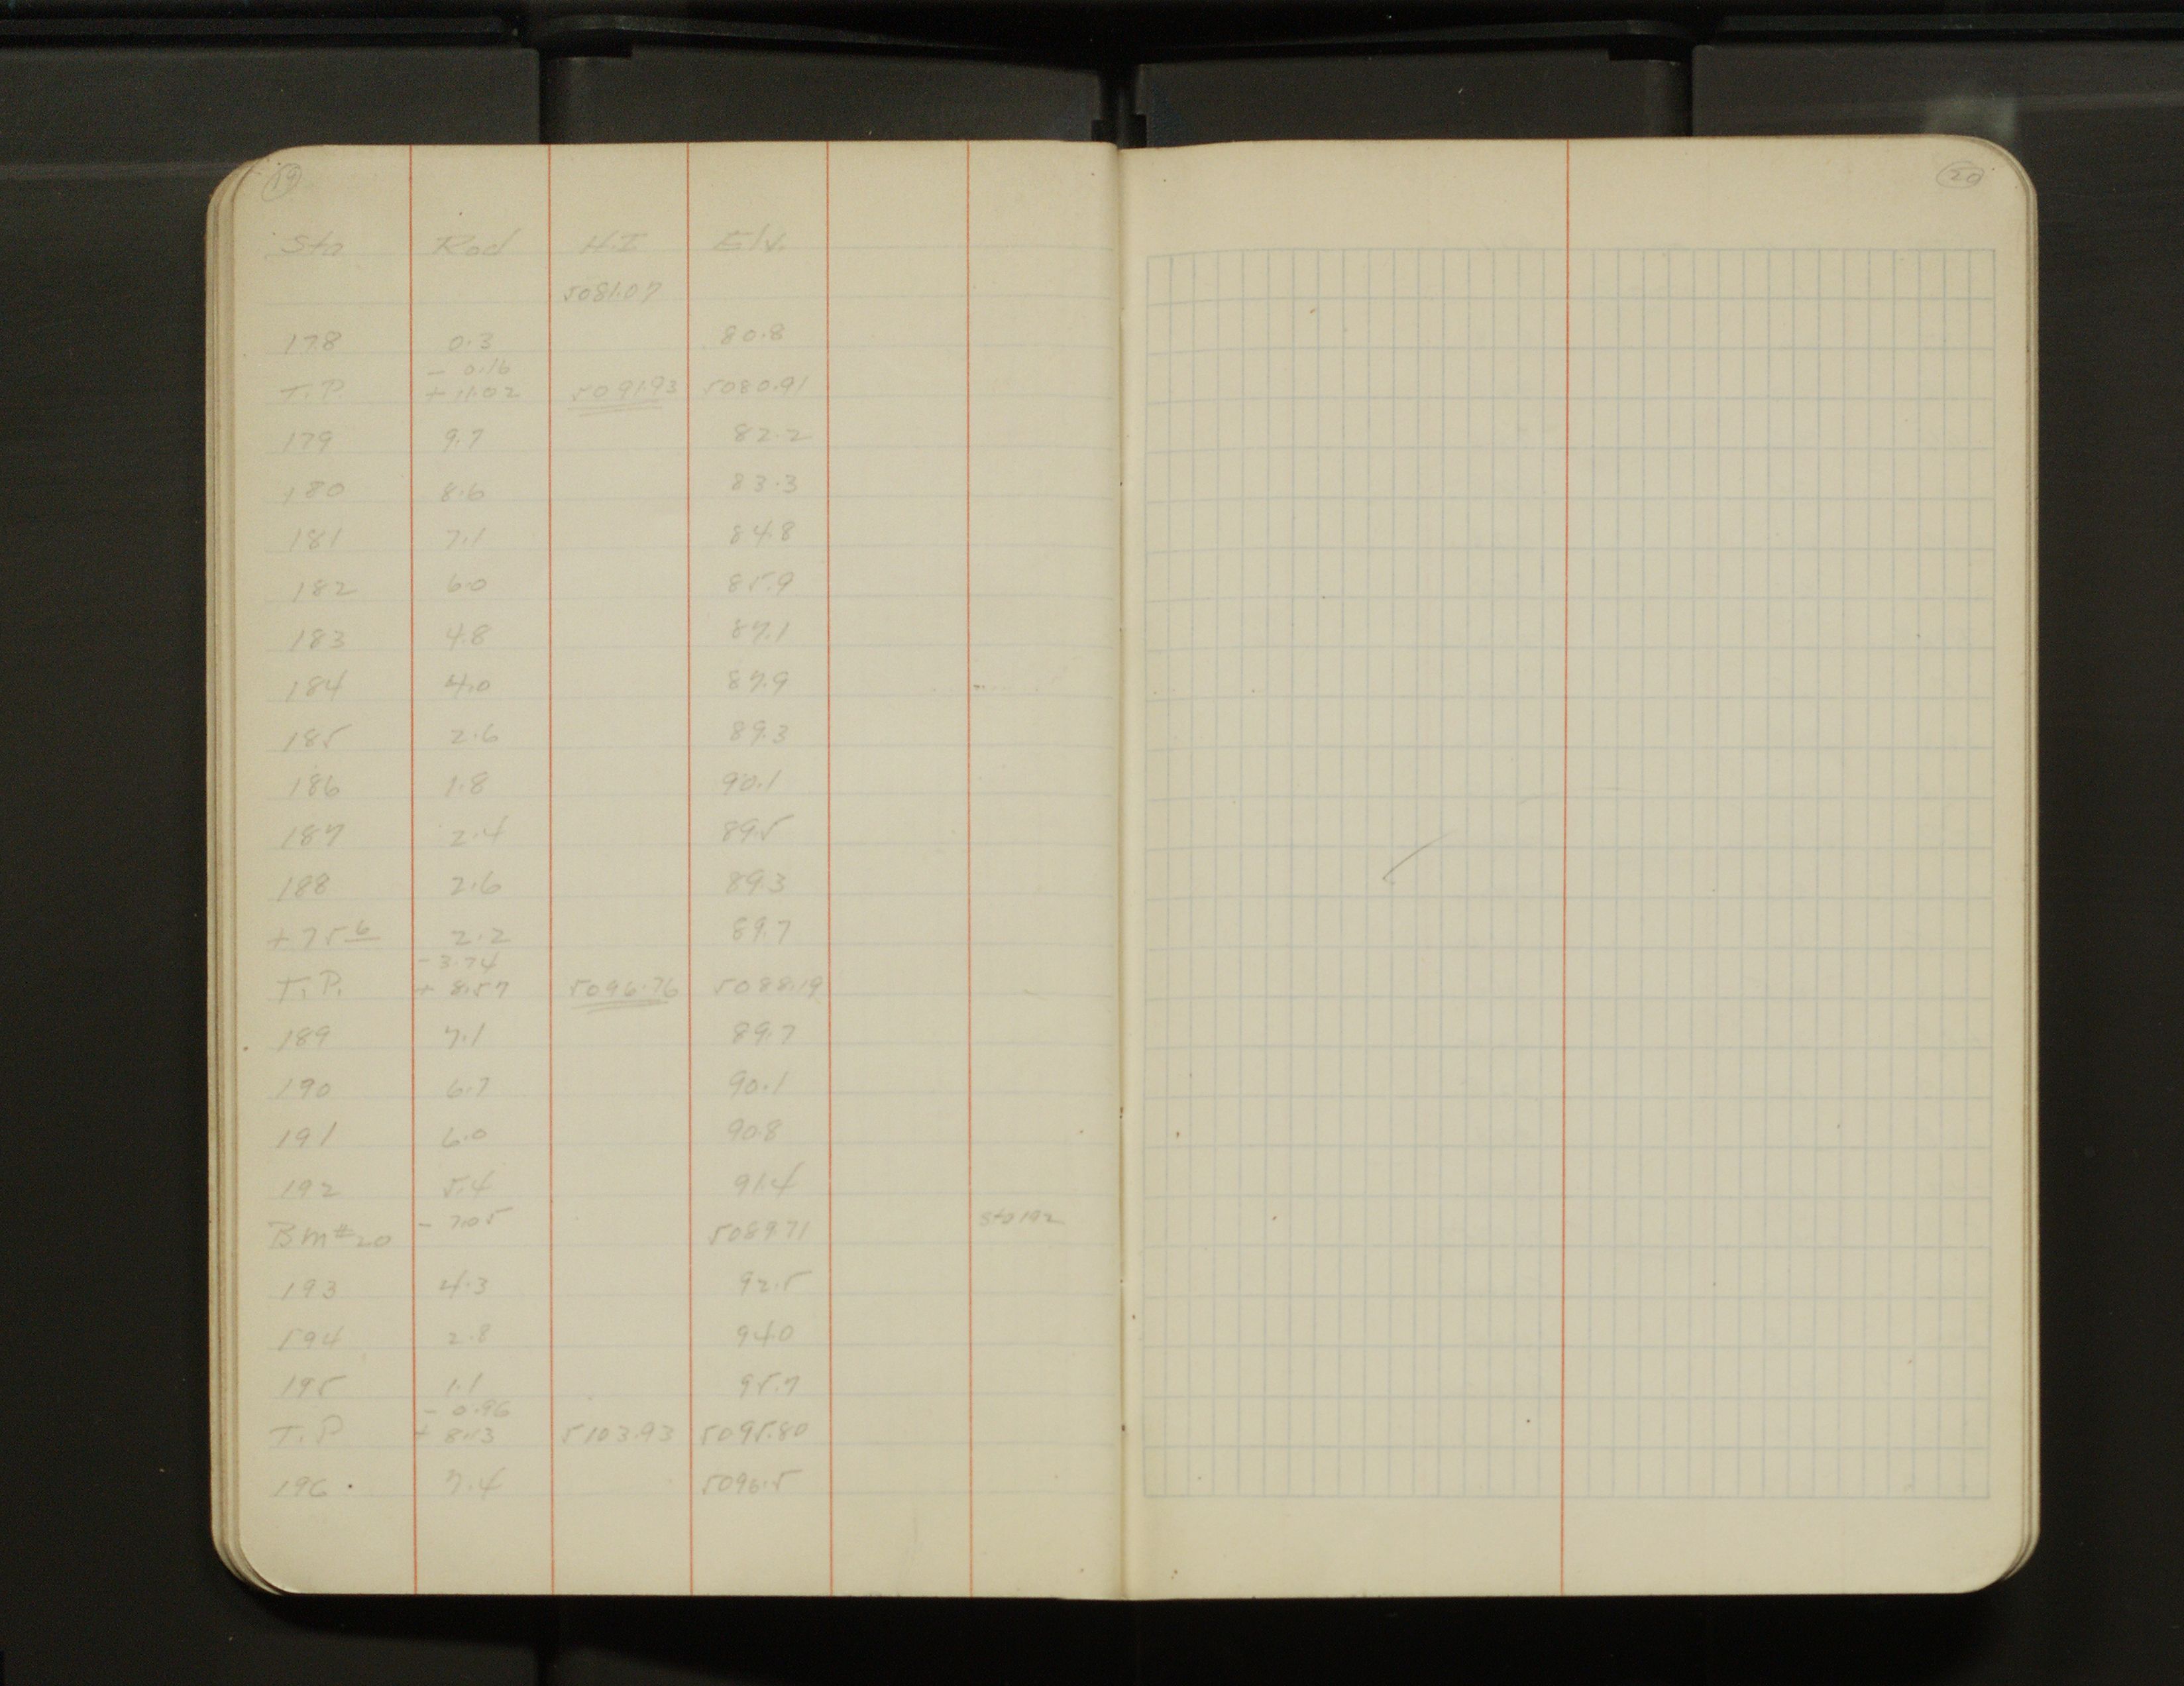 19
20
Sta Rod H.I Elv.
5081.07
178 0.3 80.8
- 0.16
T.P. + 11.02 5091.93 5080.91
179 9.7 82.2
180 8.6 83.3
181 7.1 84.8
182 6.0 85.9
183 4.8 87.1
184 4.0 87.9
185 2.6 89.3
186 1.8 90.1
187 2.4 89.5
188 2.6 89.3
+75 6 2.2 89.7
- 3.74
T.P. + 8.57 5096.76 5088.19
189 7.1 89.7
190 6.7 90.1
191 6.0 90.8
192 5.4 91.4
BM#20 - 7.05 5089.71 Sta 192
193 4.3 92.5
194 2.8 94.0
195 1.1 95.7
- 0.96
T.P + 8.13 5103.93 5095.80
196. 7.4 5096.5